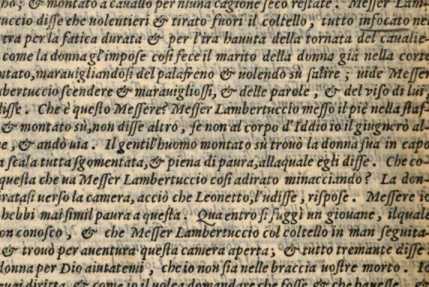 no; & montato a cauallo per niuna cagione seco restate. Messer Lam-
tuccio disse che uolentieri & tirato fuori il coltello, tutto infocato nel
tra per la fatica durata & per l'ira hauuta della tornata del caualie-
come la donna gl'impose cosi fece il marito della donna gia nella corte
ntato, marauigliandosi del palafreno & uolendo sù salire; uide Messer
bertuccio scendere & marauigliossi, & delle parole, & del uiso di lui,
disse. Che è questo Messere? Messer Lambertuccio messo il piè nella staf-
& montato sù, non disse altro, se non al corpo d'Iddio io il giugnerò al-
e, & andò uia. Il gentil'huomo montato sù trouò la donna sua in capo
a scala tutta sgomentata, & piena di paura, alla quale egli disse. Che co-
questa che ua Messer Lambertuccio cosi adirato minacciando? La don-
ratasi uerso la camera, acciò che Leonetto, l'udisse, rispose. Messere io
hebbi mai simil paura a questa. Qua entro si fuggì un giouane, il quale
on conosco, & che Messer Lambertuccio col coltello in man seguita-
& trouò per auentura questa camera aperta; & tutto tremante disse
donna per Dio aiutatemi, che io non sia nelle braccia uostre morto. Io
diritta, & come io il uolea domandare che fosse & che hauesse